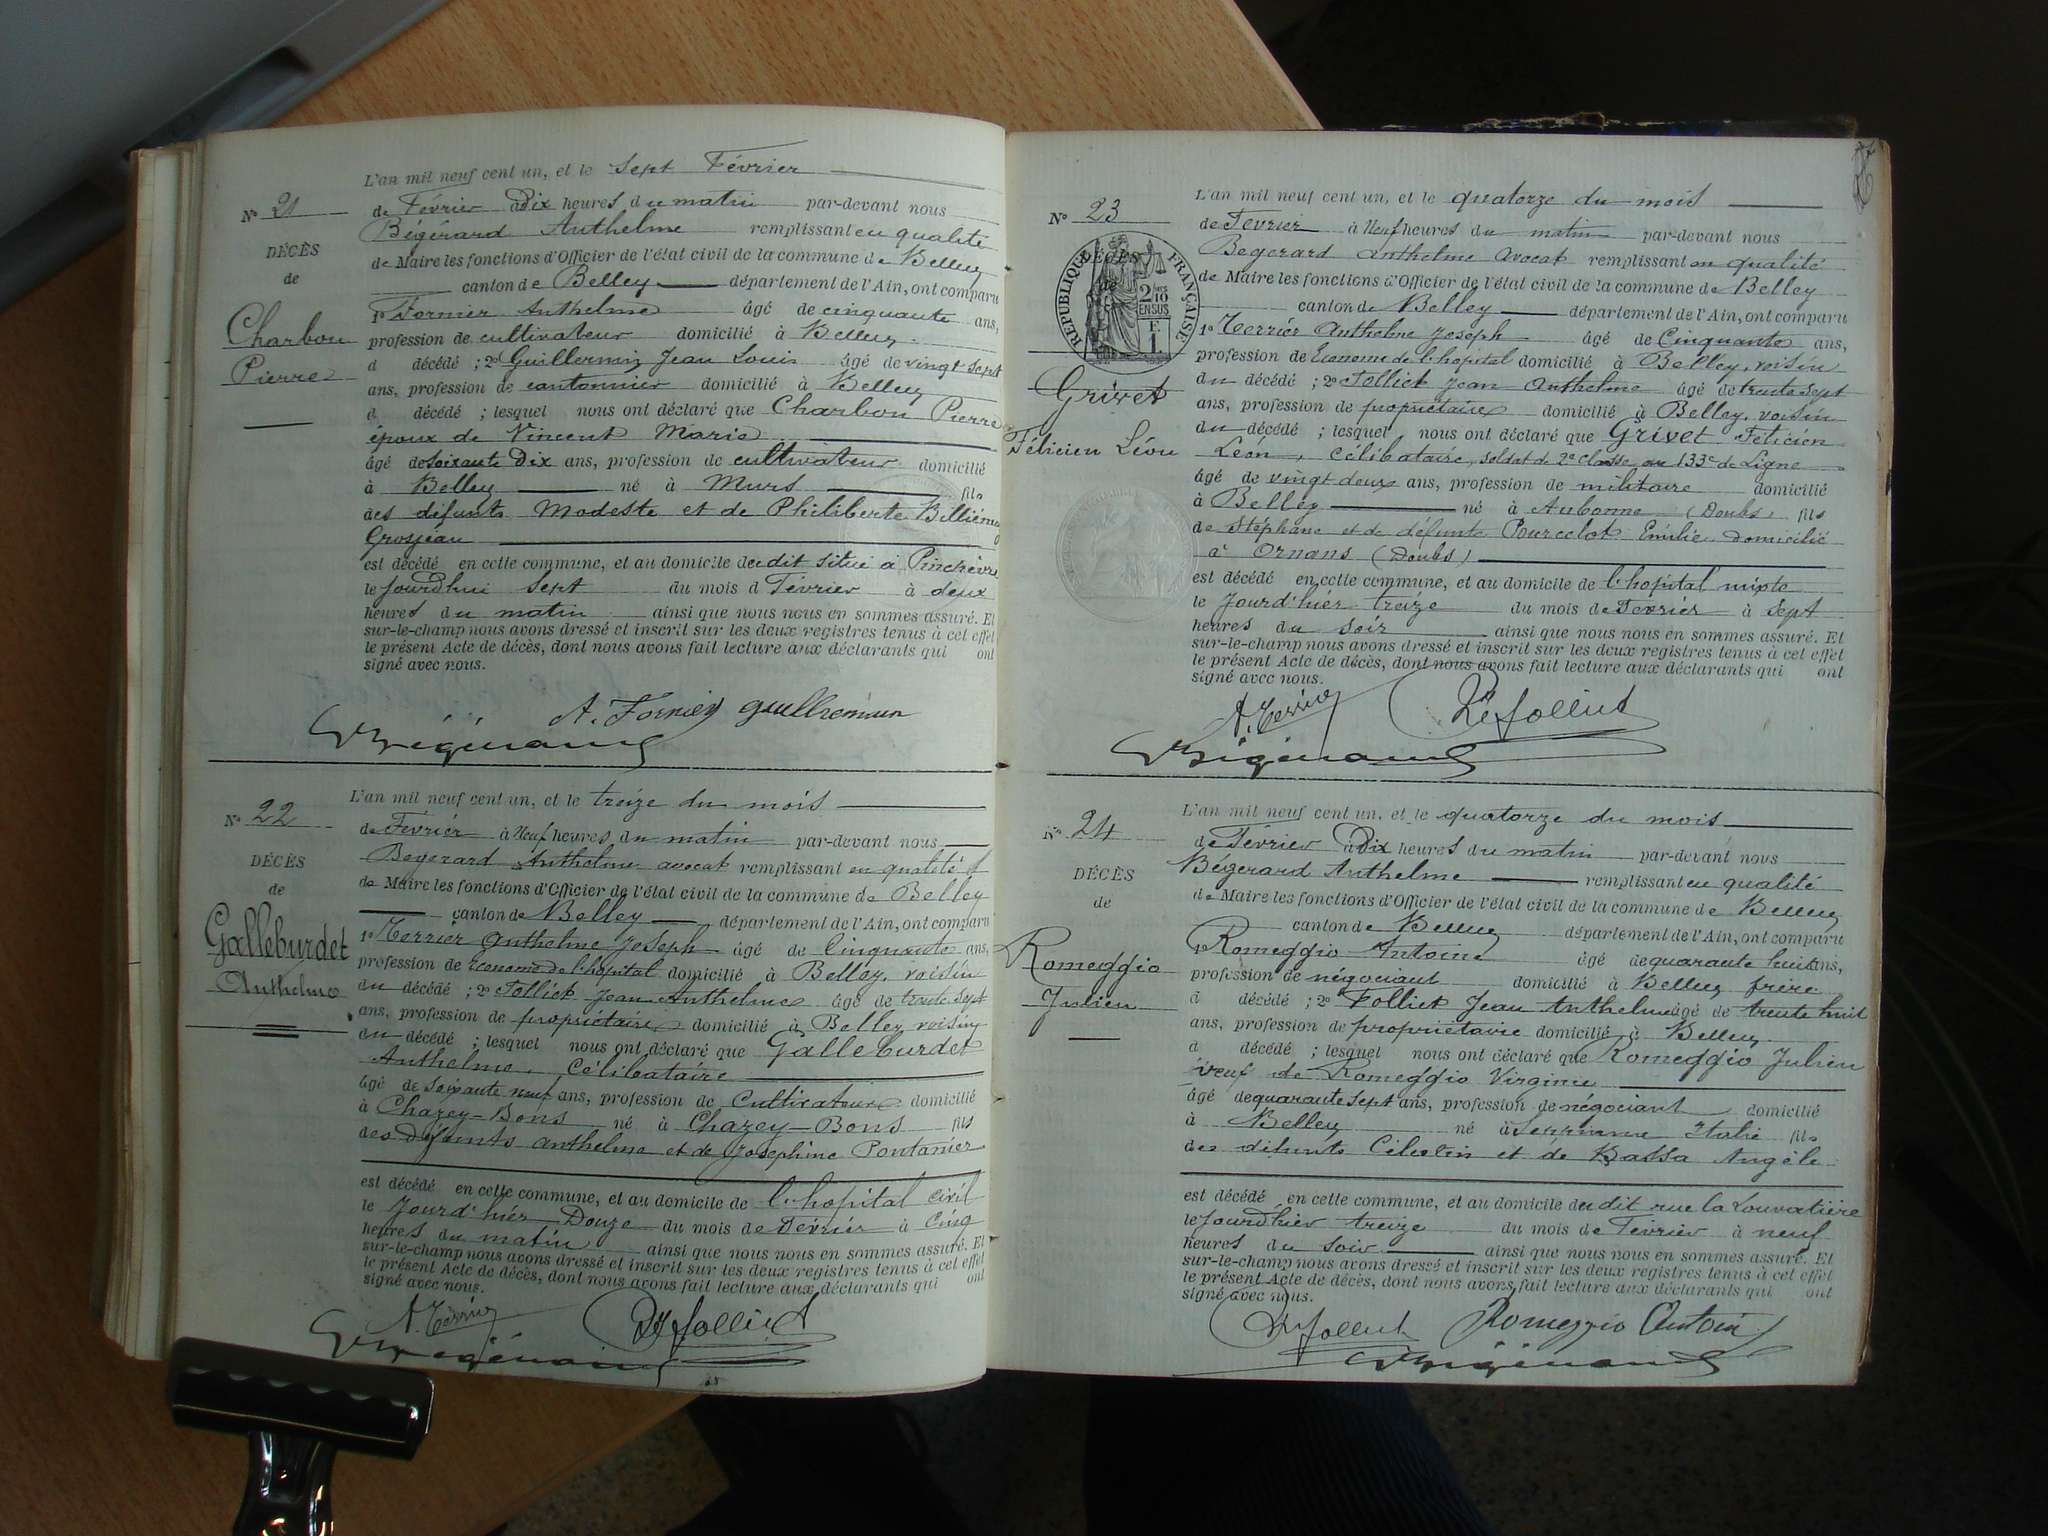 L'an mil neuf cent un, et le sept Février
N° 21
de Février à Dix heures du matin par-devant nous
Bégérard Anthelme remplissant en qualité
DÉCÈS
de Maire les fonctions d'Officier de l'état civil de la commune de Belley
de
canton de Belley département de l'Ain, ont comparu
1° Fornier Anthelme âgé de cinquante ans,
Charbon
profession de cultivateur domicilié à Belley
Pierre
d décédé ; 2° Guillermin Jean Louis âgé de vingt sept
ans, profession de cantonnier domicilié à Belley
d décédé ; lesquel nous ont déclaré que Charbon Pierre
époux de Vincent Marie
âgé de soixante Dix ans, profession de cultivateur domicilié
à Belley né à Murs fils
des défunts Modeste et de Philiberte Billiémaz
Grosjean
est décédé en cette commune, et au domicile du dit situé à
le jourd'hui sept du mois d Février à deux
heures du matin ainsi que nous nous en sommes assuré. Et
sur-le-champ nous avons dressé et inscrit sur les deux registres tenus à cet effet
le présent Acte de décès, dont nous avons fait lecture aux déclarants qui ont
signé avec nous.
A. Fornier Guillermin
Bégérard
L'an mil neuf cent un, et le treize du mois
N° 22
de Février à Neuf heures du matin par-devant nous
Begerard Anthelme avocat remplissant en qualité
DÉCÈS
de Maire les fonctions d'Officier de l'état civil de la commune de Belley
de
canton de Belley département de l'Ain, ont comparu
Galleburdet
1° Terrier Anthelme Joseph âgé de Cinquante ans,
Anthelme
profession de Econome de l'hopital domicilié à Belley, voisin
du décédé ; 2° Folliet Jean Anthelme âgé de trente sept
ans, profession de propriétaire domicilié à Belley voisin
du décédé ; lesquel nous ont déclaré que Galleburdet
Anthelme, Célibataire
âgé de soixante neuf ans, profession de Cultivateur domicilié
à Chazey-Bons né à Chazey-Bons fils
des défunts Anthelme et de Josephine Pontanier
est décédé en cette commune, et au domicile de l'hopital civil
le Jourd'hier Douze du mois de Février à Cinq
heures du matin ainsi que nous nous en sommes assuré. Et
sur-le-champ nous avons dressé et inscrit sur les deux registres tenus à cet effet
le présent Acte de décès, dont nous avons fait lecture aux déclarants qui ont
signé avec nous.
A. Terrier Folliet
Bégérard
L'an mil neuf cent un, et le quatorze du mois
N° 23
de Fevrier à Neuf heures du matin par-devant nous
Begerard Anthelme Avocat remplissant en qualité
DÉCÈS
de
RÉPUBLIQUE FRANÇAISE
2/10 EN SUS
F. 1
de Maire les fonctions d'Officier de l'état civil de la commune de Belley
canton de Belley département de l'Ain, ont comparu
1° Terrier Anthelme Joseph âgé de Cinquante ans,
profession de Econome de l'hopital domicilié à Belley, voisin
Grivet
du décédé ; 2° Folliet Jean Anthelme âgé de trente sept
ans, profession de propriétaire domicilié à Belley, voisin
Félicien Léon
du décédé ; lesquel nous ont déclaré que Grivet Félicien
Léon, Célibataire, soldat de 2e classe au 133e de Ligne
âgé de vingt deux ans, profession de militaire domicilié
à Belley né à Aubonne (Doubs) fils
de Stéphane et de défunte Pourcelot Emilie domicilié
à Ornans (Doubs)
est décédé en cette commune, et au domicile de l'hopital mixte
le Jourd'hier treize du mois de Fevrier à Sept
heures du soir ainsi que nous nous en sommes assuré. Et
sur-le-champ nous avons dressé et inscrit sur les deux registres tenus à cet effet
le présent Acte de décès, dont nous avons fait lecture aux déclarants qui ont
signé avec nous.
A. Terrier Folliet
Bégérard
L'an mil neuf cent un, et le quatorze du mois
N° 24
de Février à Dix heures du matin par-devant nous
Bégerard Anthelme remplissant en qualité
DÉCÈS
de Maire les fonctions d'Officier de l'état civil de la commune de Belley
de
canton de Belley département de l'Ain, ont comparu
Romeggio
1° Romeggio Antoine âgé de quarante huit ans,
profession de négociant domicilié à Belley frère
Julien
d décédé ; 2° Folliet Jean Anthelme âgé de trente huit
ans, profession de propriétaire domicilié à Belley
d décédé ; lesquel nous ont déclaré que Romeggio Julien
veuf de Romeggio Virginie
âgé de quarante sept ans, profession de négociant domicilié
à Belley né à Italie fils
des défunts Célestin et de Bassa Angèle
est décédé en cette commune, et au domicile du dit rue la Louvatière
le jourdhier treize du mois de Février à neuf
heures du soir ainsi que nous nous en sommes assuré. Et
sur-le-champ nous avons dressé et inscrit sur les deux registres tenus à cet effet
le présent Acte de décès, dont nous avons fait lecture aux déclarants qui ont
signé avec nous.
Folliet Romeggio Antoin
Bégérard